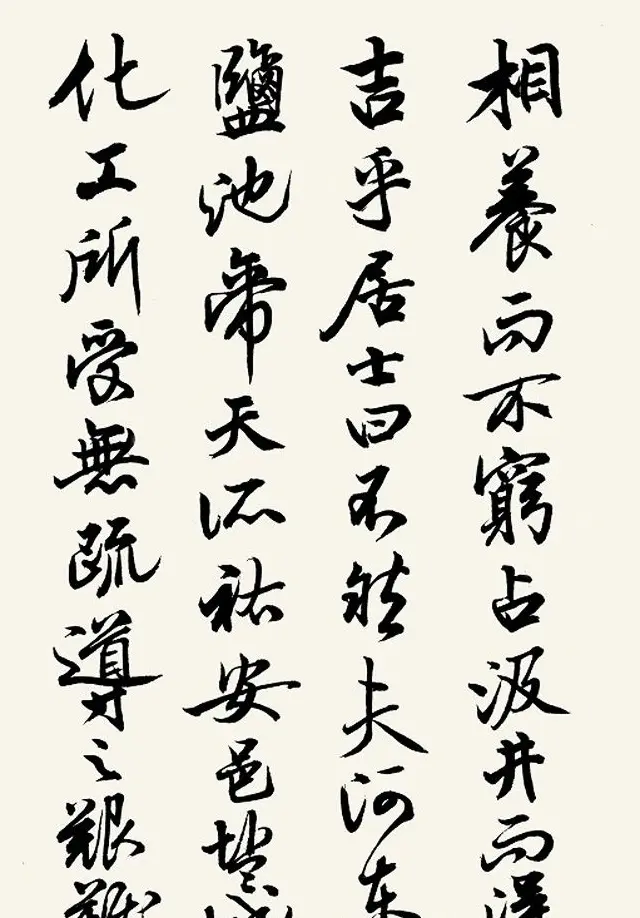 相養而不窮占汲井而
吉乎居士曰不然夫河東
鹽池帝天祐安邑
化工所受無疏導之艱難